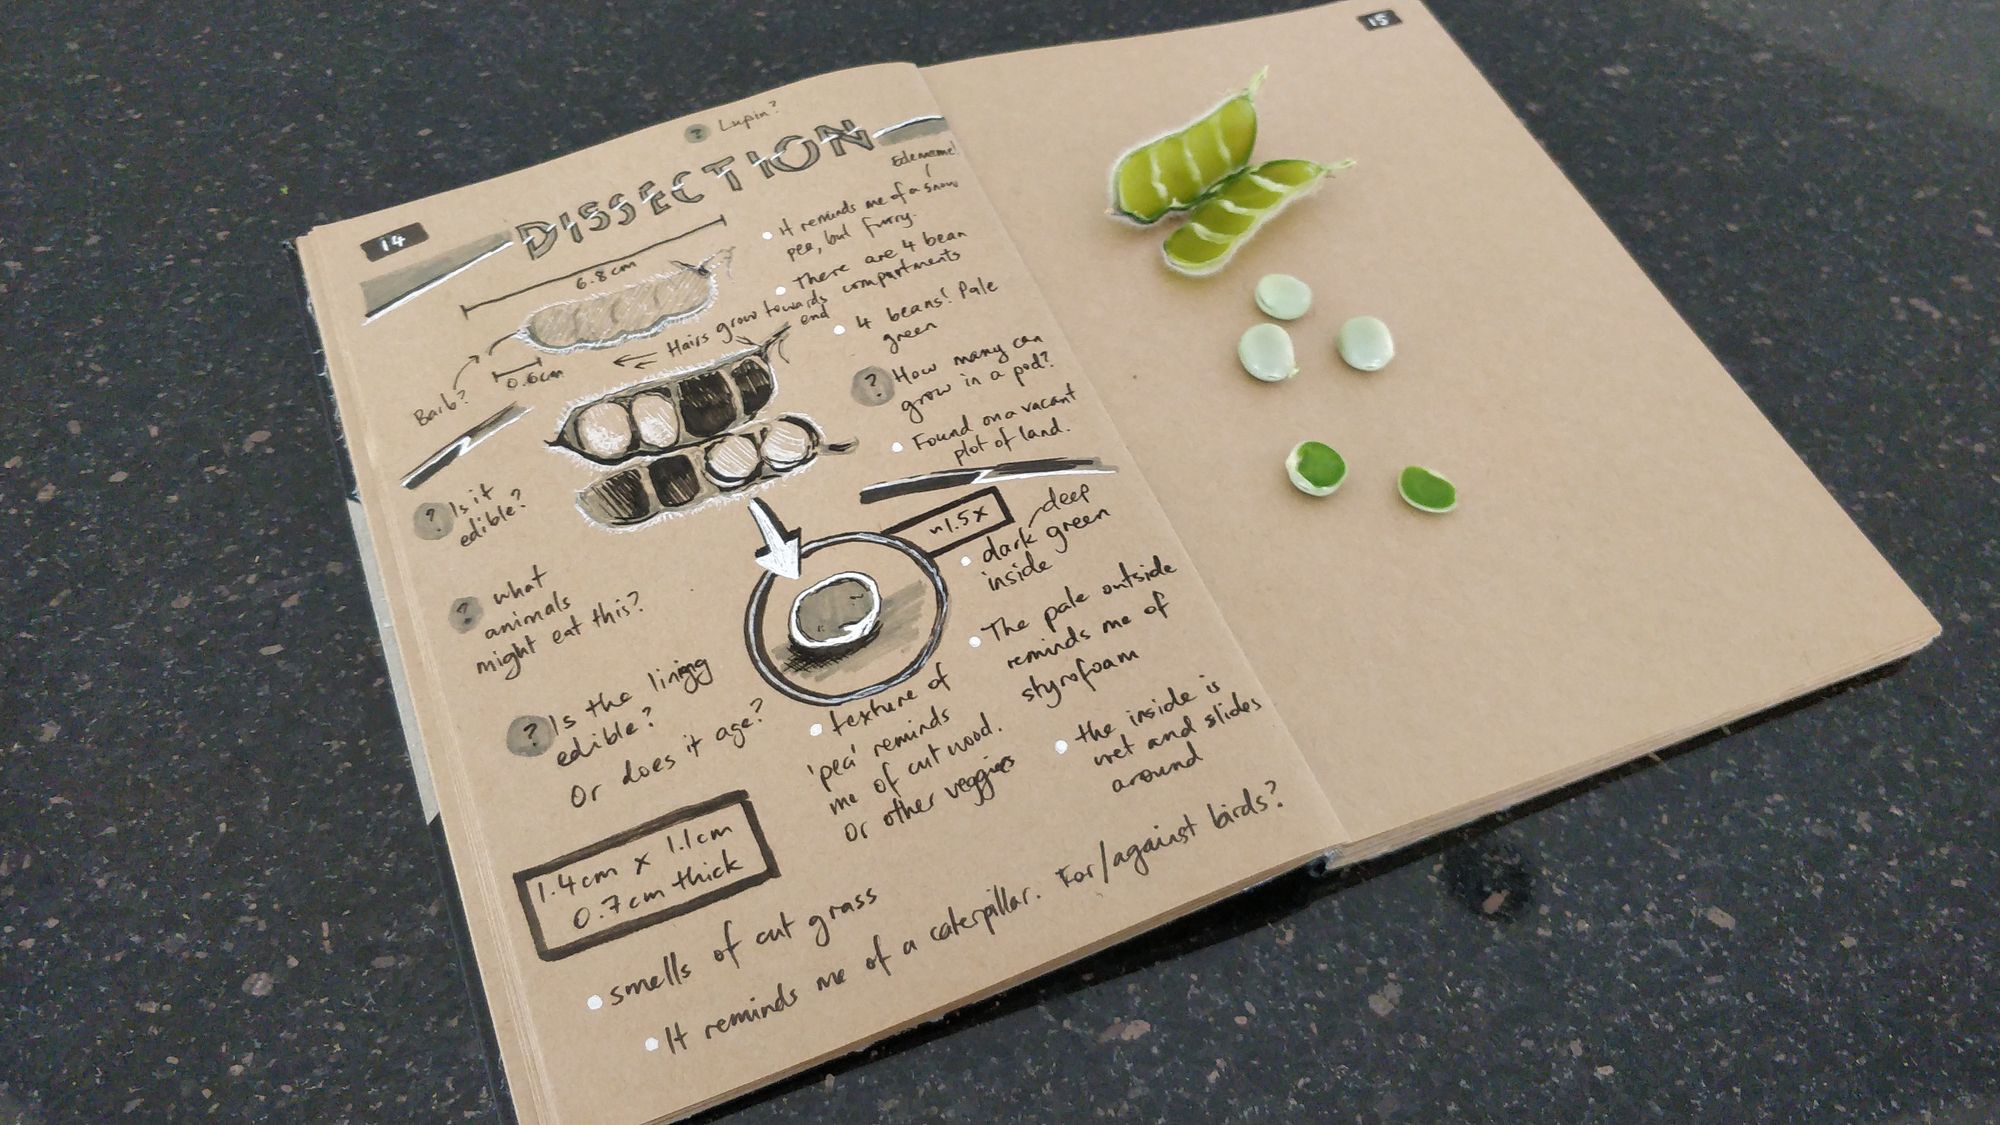 14
15
? Lupin?
DISSECTION
Edamame!
6.8cm
It reminds me of a snow
pea, but furry.
There are 4 bean
compartments
Hairs grow towards
end
4 beans! Pale
green
Barb?
0.6cm
? How many can
grow in a pod?
Found on a vacant
plot of land.
? Is it
edible?
~1.5x
deep
dark green
inside
? what
animals
might eat this?
The pale outside
reminds me of
styrofoam
? Is the lining
edible?
Or does it age?
texture of
'pea' reminds
me of cut wood.
Or other veggies
the inside is
wet and slides
around
1.4cm x 1.1cm
0.7cm thick
smells of cut grass
It reminds me of a caterpillar. For/against birds?